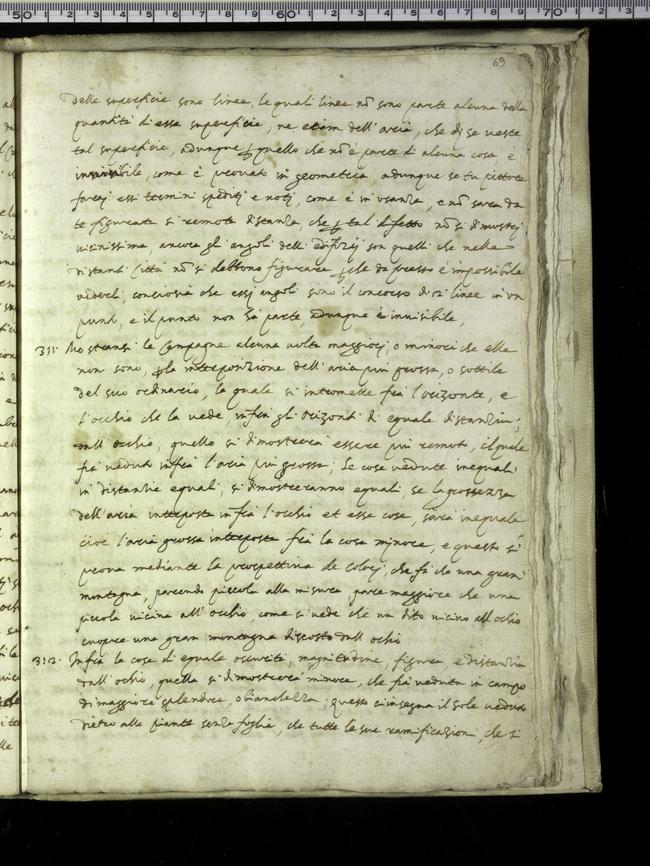 69
delle superficie sono linee, le quali linee nõ sono parte alcuna della
quantità di essa superficie, ne etiam dell'aria, che di se veste
tal superficie, adunque quello che nõ è parte di alcuna cosa è
invisibile, come è provato in geometria adunque se tu pittore
farai essi termini spediti e noti, come è in usanza, e nõ sarà da
te figurata si remota distanza, che p tal difetto nõ si dimostri
vicinissima ancora gli angoli delli edifizij son quelli che nelle
distanti Città nõ si debbono figurare p che da presso è impossibile
vederli, conciosia che essi angoli sono il concorso di 2 linee in un
punto, e il punto non ha parte, adunque è invisibile,
311 Mostransi le Campagne alcuna volta maggiori, o minori che elle
non sono, p la interposizione dell'aria più grossa, o sottile
del suo ordinario, la quale si intromette fra l'orizonte, e
l'occhio che la vede, infra gli orizonti di equale distanzia,
dall'occhio, quello si dimostrerà essere più remoto, il quale
fia veduto infra l'aria più grossa; Le cose vedute inequali
in distanzie equali, si dimostreranno equali, se la grossezza
dell'aria interposta infra l'occhio et esse cose, sarà inequale
cioè l'aria grossa interposta fra la cosa minore, e questo si
prova mediante la prospettiva de colori, che fa che una gran
montagna, parendo piccola alla misura, pare maggiore che una
piccola vicina all'occhio, come si vede che un dito vicino all ochio
cuopre una gran montagna discosto dall ochio
312 Infra le cose di equale oscurità, magnitudine, figura, e distanzia
dall'ochio, quella si dimostrerà minore, che fia veduta in campo
di maggiore splendore, o bianchezza; questo c'insegna il sole veduto
dietro alle piante senza foglie, che tutte le sue ramificazioni, che si